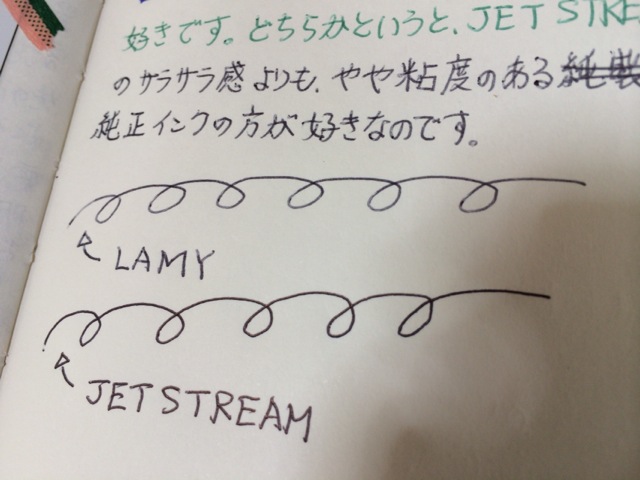 好きです。どちらかというと、JETSTRE
のサラサラ感よりも、やや粘度のある
純正インクの方が好きなのです。
LAMY
JETSTREAM